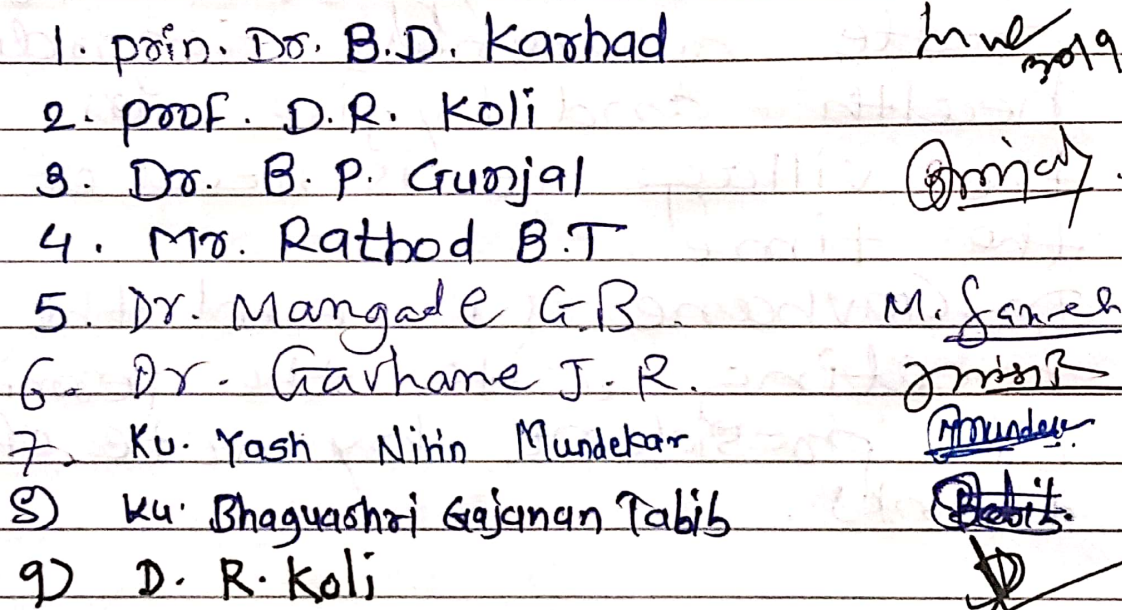 1. Prin. Dr. B.D. Karhad
2. Prof. D.R. Koli
3. Dr. B.P. Gunjal
4. Mr. Rathod B.T
5. Dr. Mangade G.B. M. Ganesh
6. Dr. Gavhane J.R.
7. Ku. Yash Nitin Mundekar
8) Ku. Bhaguashri Gajanan Tabib
9) D. R. Koli